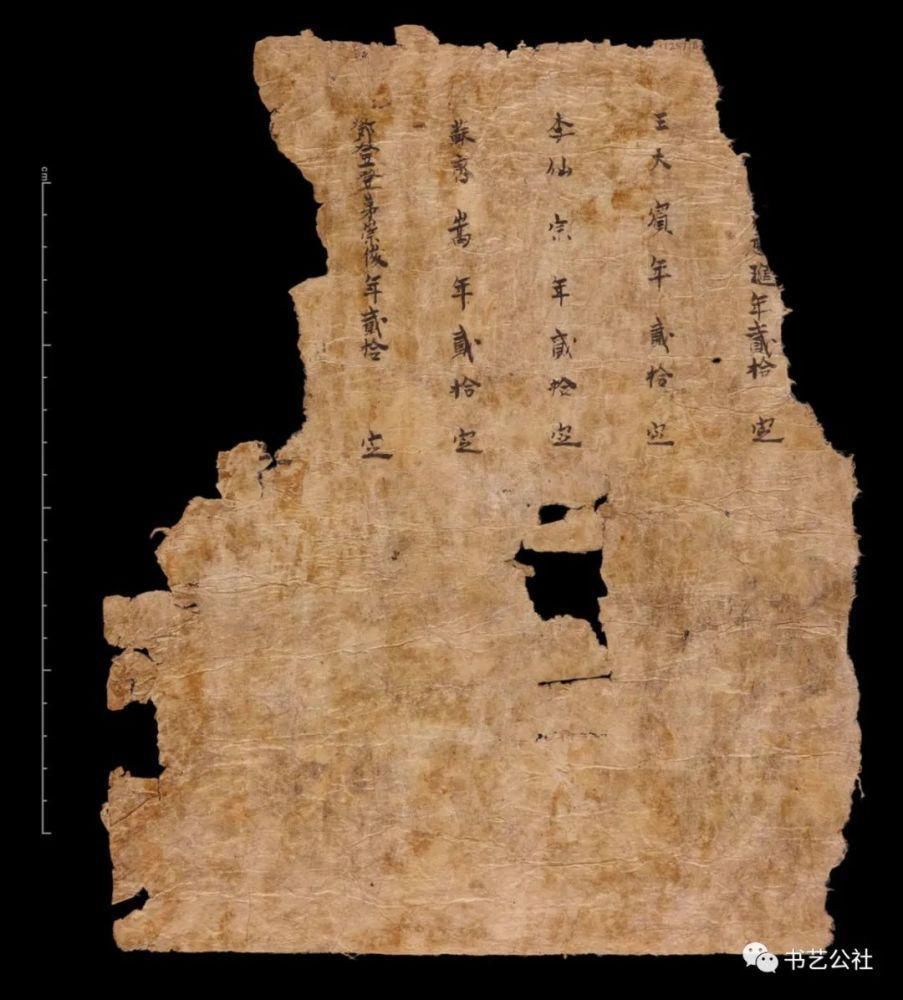 年貳拾 定
王大賓年貳拾 定
李仙宗年貳拾 定
蘇嵩年貳拾 定
登登弟崇俊年貳拾 定
cm
书艺公社